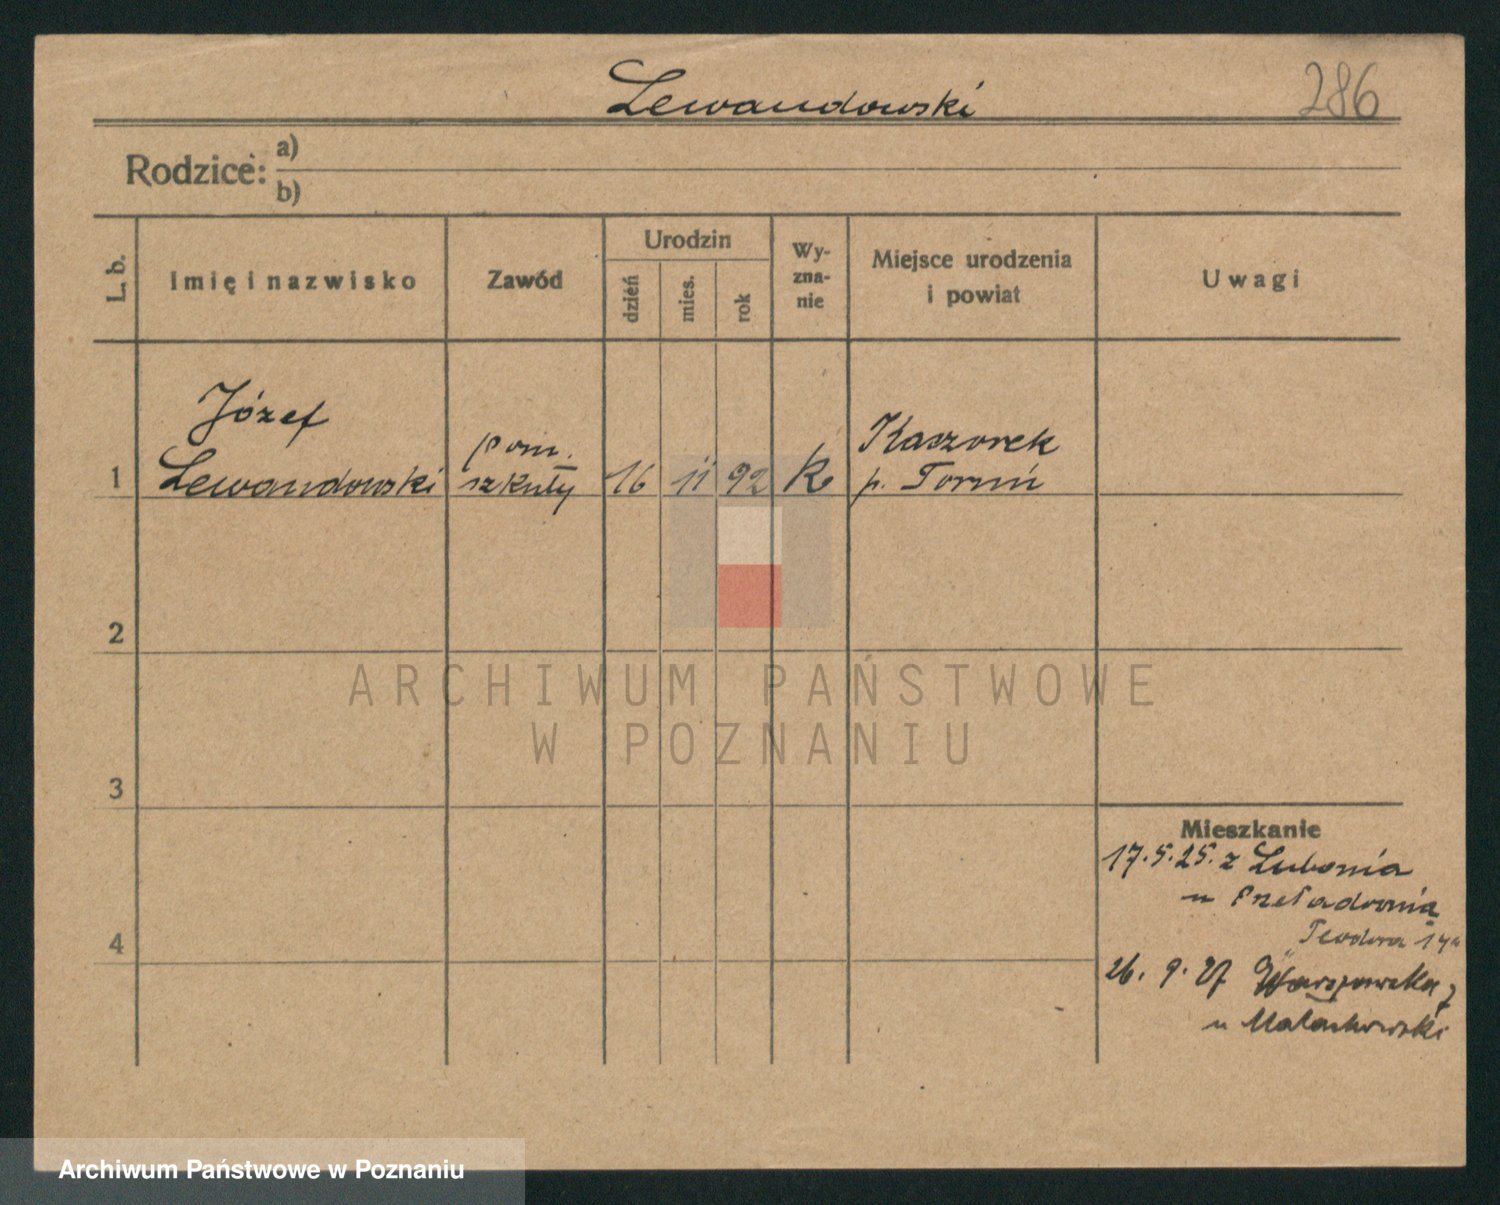 Lewandowski
286
Rodzice: a)
b)
L. b.
Imię i nazwisko
Zawód
Urodzin
dzień
mies.
rok
Wy-
zna-
nie
Miejsce urodzenia
i powiat
Uwagi
Józef
Lewandowski
pom.
szkuty
16
11
92
K
Kaszorek
p. Toruń
1
2
3
4
Mieszkanie
17.5.25. z Lubonia
u
Teodora 14a
26. 9. 27 Warszawska 7
u Małachowski
ARCHIWUM PAŃSTWOWE
W POZNANIU
Archiwum Państwowe w Poznaniu